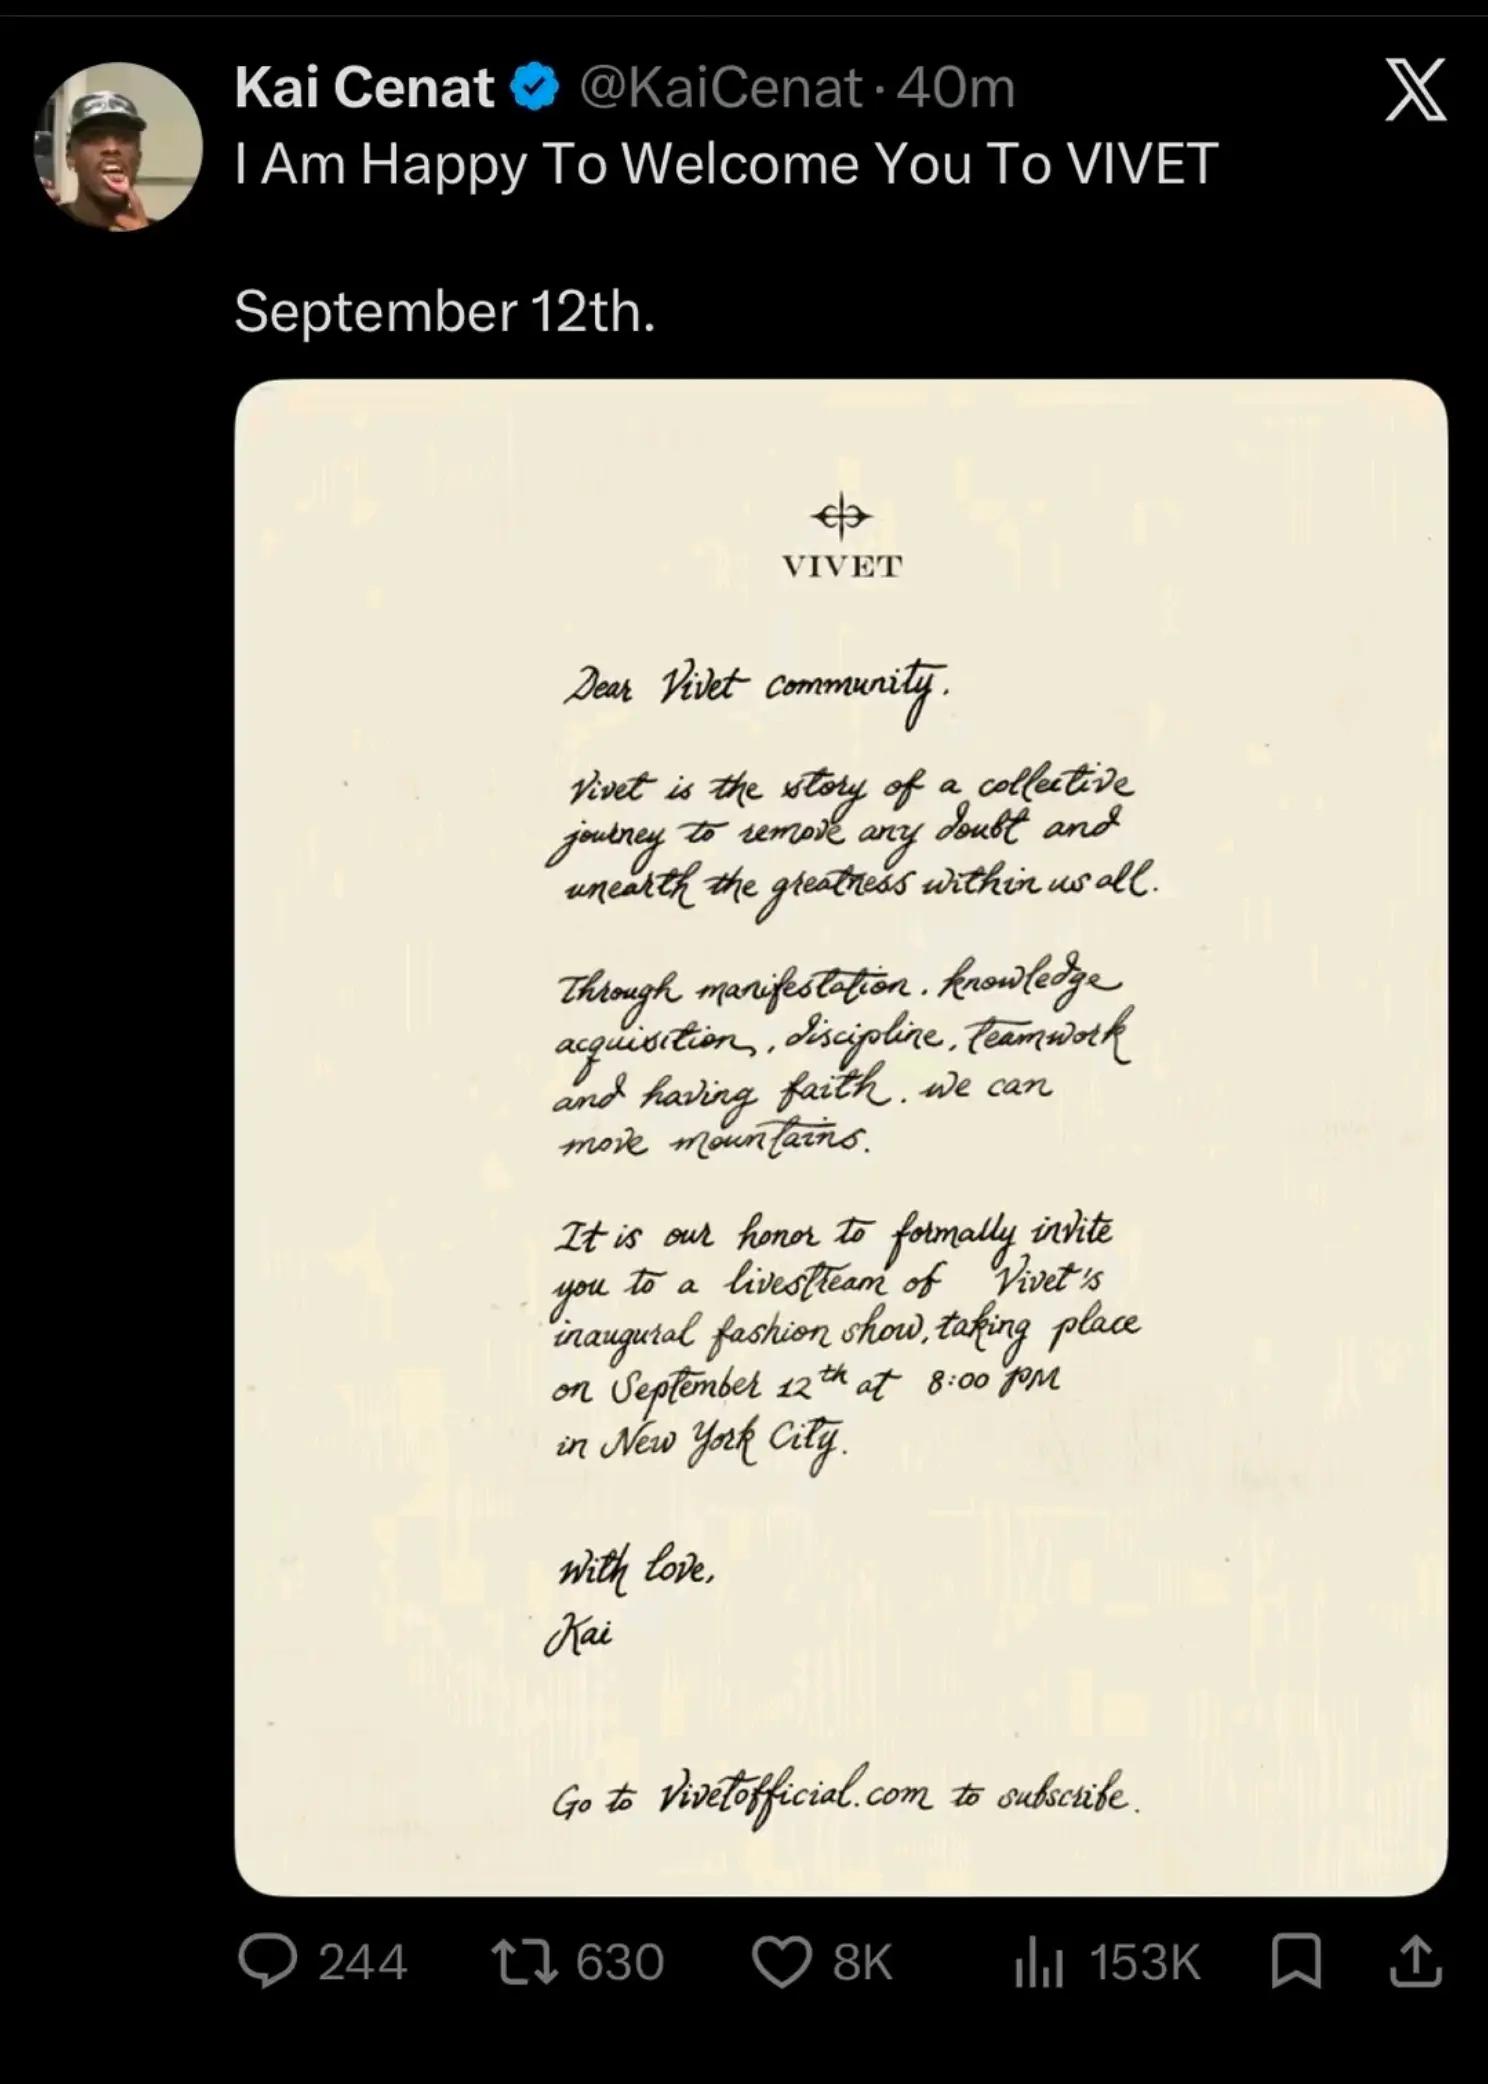 Kai Cenat @KaiCenat · 40m
I Am Happy To Welcome You To VIVET
September 12th.
VIVET
Dear Vivet community.
Vivet is the story of a collective
journey to remove any doubt and
unearth the greatness within us all.
Through manifestation, knowledge
acquisition, discipline, teamwork
and having faith, we can
move mountains.
It is our honor to formally invite
you to a livestream of Vivet's
inaugural fashion show, taking place
on September 12th at 8:00 PM
in New York City.
With love,
Kai
Go to Vivetofficial.com to subscribe.
244 630 8K 153K